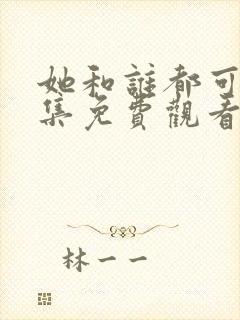 她和誰都可
集免費觀看
林一一